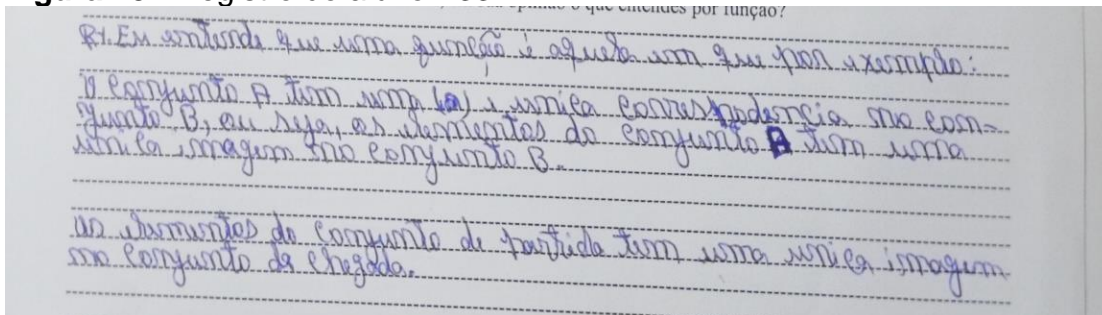 o que entendes por função?
R1. Eu entende que uma função é aquela em que por exemplo:
O conjunto A tem uma (a) e unica correspodencia no con=
junto B, ou seja, os elementos do conjunto A tem uma
unica imagem no conjunto B.
os elementos do conjunto de partida tem uma unica imagem
no conjunto da chegada.